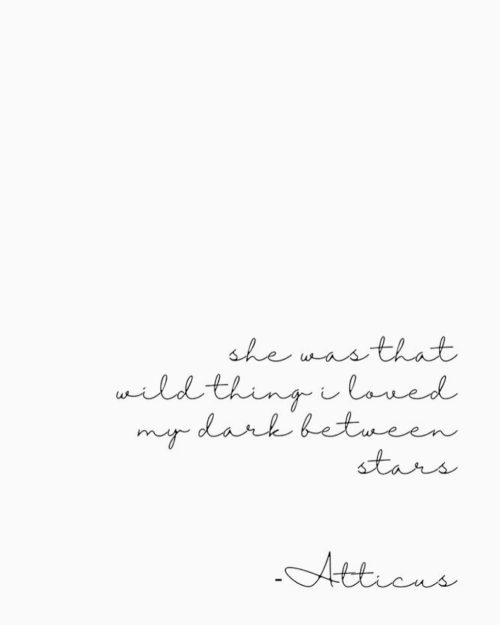 she was that
wild thing i loved
my dark between
stars
-Atticus